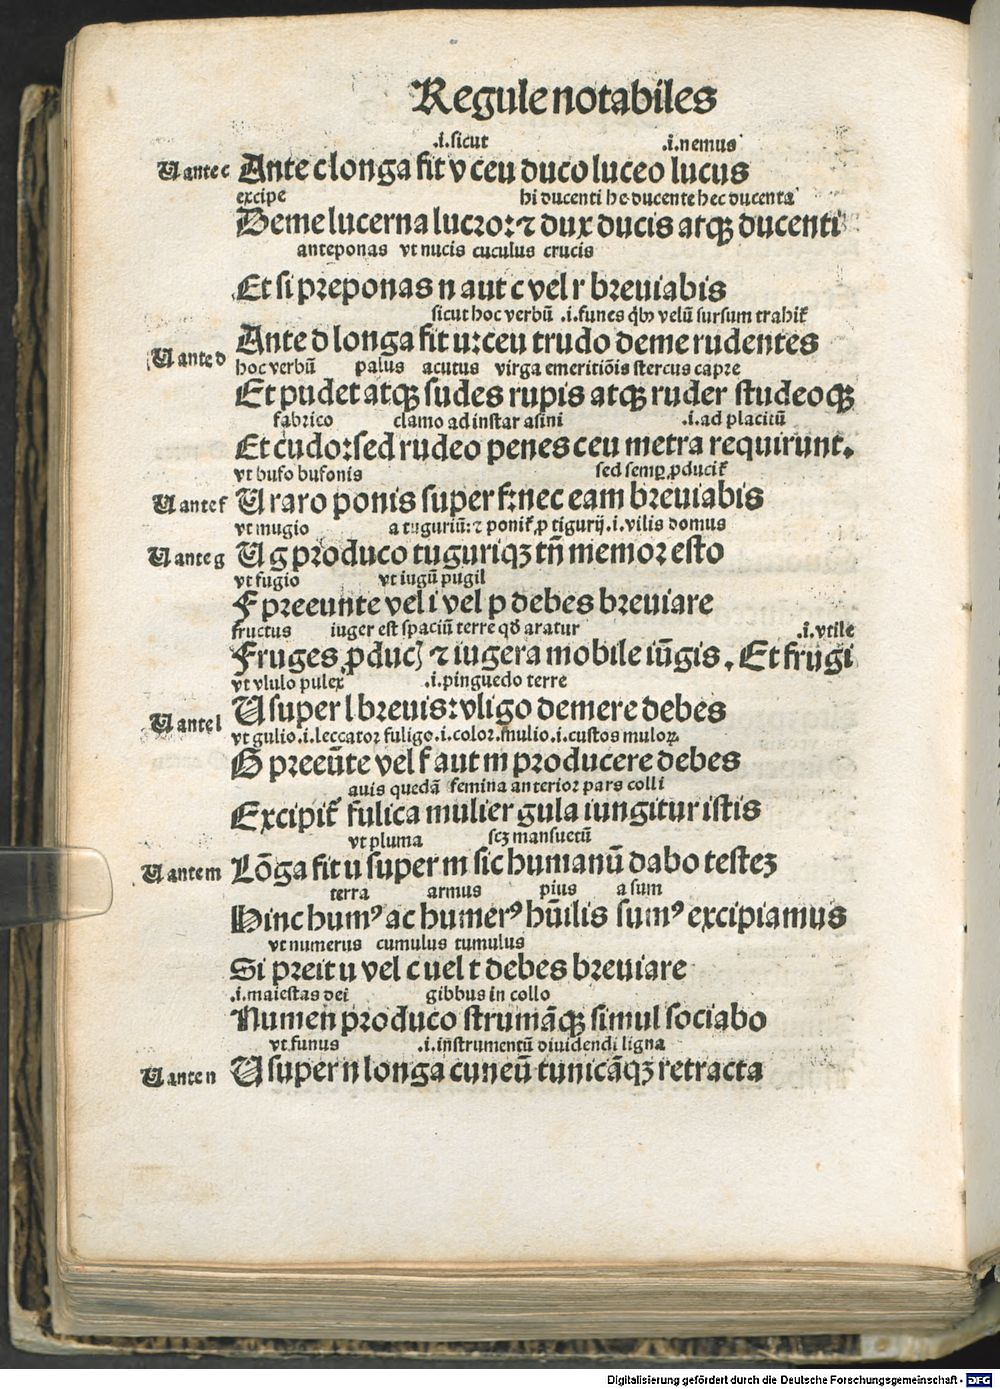 Regule notabiles
.i. sicut .i. nemus
U ante c Ante c longa fit v ceu duco luceo lucus
excipe hi ducenti hec ducente hec ducenta
Deme lucerna lucror: ⁊ dux ducis atqꝫ ducenti
anteponas vt nucis cuculus crucis
Et si preponas n aut c vel r breuiabis
sicut hoc verbū .i. funes qͥbꝫ velū sursum trahit᷑
U ante d Ante d longa fit u: ceu trudo deme rudentes
hoc verbū palus acutus virga emeritiōis stercus capre
Et pudet atqꝫ sudes rupis atqꝫ ruder studeoqꝫ
fabrico clamo ad instar asini .i. ad placitū
Et cudo: sed rudeo penes ceu metra requirunt.
vt bufo bufonis sed semꝑ ꝓducit᷑
U ante f U raro ponis super f: nec eam breuiabis
vt mugio a tuguriū: ⁊ ponit᷑ ꝓ tigurij .i. vilis domus
U ante g U g produco tuguriqꝫ tn̄ memor esto
vt fugio vt iugū pugil
F preeunte vel i vel p debes breuiare
fructus iuger est spaciū terre qd̄ aratur .i. vtile
Fruges ꝓduc̄ ⁊ iugera mobile iūgis. Et frugi
vt vlulo pulex .i. pinguedo terre
U ante l U super l breuis: vligo demere debes
vt gulio .i. leccator fuligo .i. color. mulio .i. custos muloꝝ.
G preeūte vel f aut m producere debes
auis quedā femina anterior pars colli
Excipit᷑ fulica mulier gula iungitur istis
vt pluma scꝫ mansuetū
U ante m Lōga fit u super m sic humanū dabo testeꝫ
terra armus pius a sum
Hinc humꝰ ac humerꝰ hūilis sumꝰ excipiamus
vt numerus cumulus tumulus
Si preit u vel c uel t debes breuiare
.i. maiestas dei gibbus in collo
Numen produco strumāqꝫ simul sociabo
vt funus .i. instrumentū diuidendi ligna
U ante n U super n longa cuneū tunicāqꝫ retracta
Digitalisierung gefördert durch die Deutsche Forschungsgemeinschaft - DFG